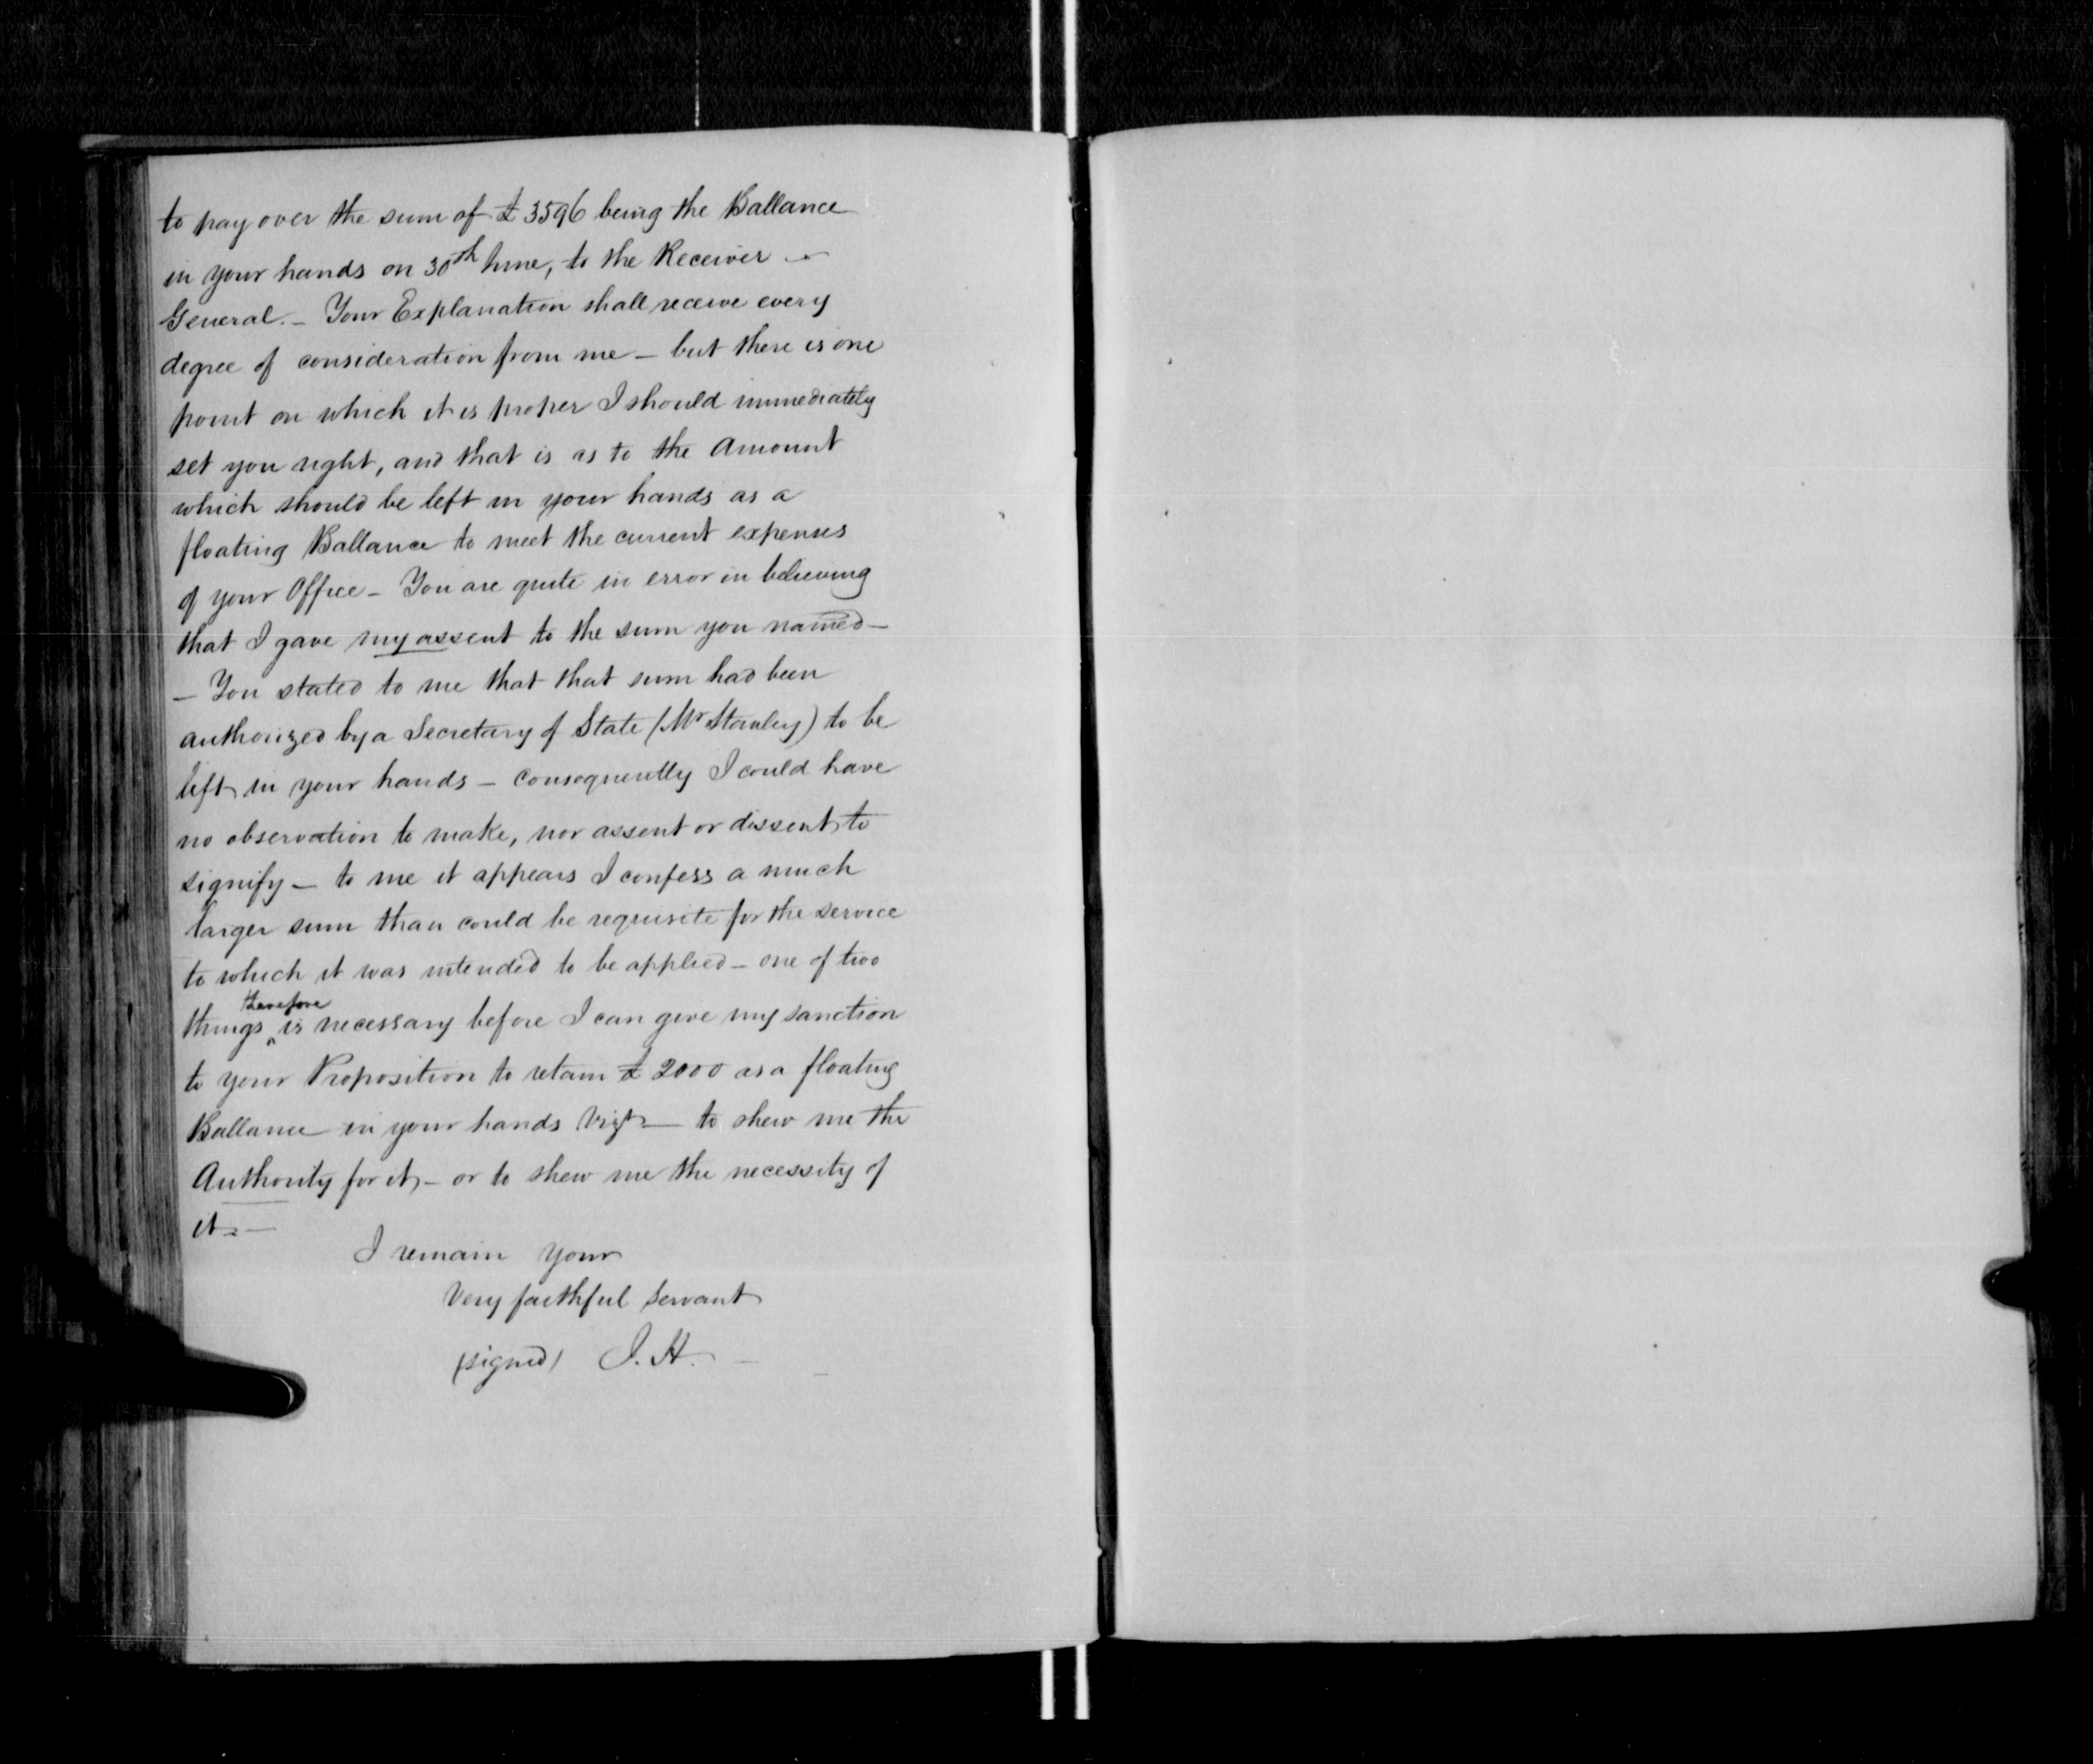 to pay over the sum of £ 3596 being the Ballance
in your hands on 30th June, to the Receiver —
General. — Your Explanation shall receive every
degree of consideration from me — but there is one
point on which it is proper I should immediately
set you right, and that is as to the Amount
which should be left in your hands as a
floating Ballance to meet the current expenses
of your Office — You are quite in error in believing
that I gave my assent to the sum you named —
— You stated to me that that sum had been
authorized by a Secretary of State (Mr Stanley) to be
left in your hands — Consequently I could have
no observation to make, nor assent or dissent to
signify — to me it appears I confess a much
larger sum than could be requisite for the service
to which it was intended to be applied — one of two
things therefore is necessary before I can give my sanction
to your Proposition to retain £ 2000 as a floating
Ballance in your hands Vizt — to shew me the
Authority for it — or to shew me the necessity of
it. —
I remain your
Very faithful Servant
(signed) J. H. —